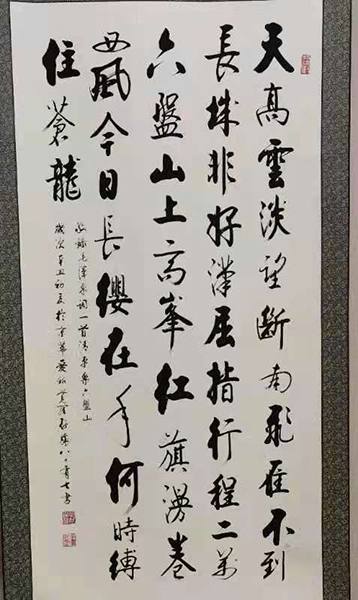 天高雲淡望斷南飛雁不到
長城非好漢屈指行程二萬
六盤山上高峯紅旗漫卷
西風今日長纓在手何時縛
住蒼龍
敬錄毛澤東詞一首清平樂六盤山
歲次辛丑初夏於京華愛新覺羅啟驤八十有七書